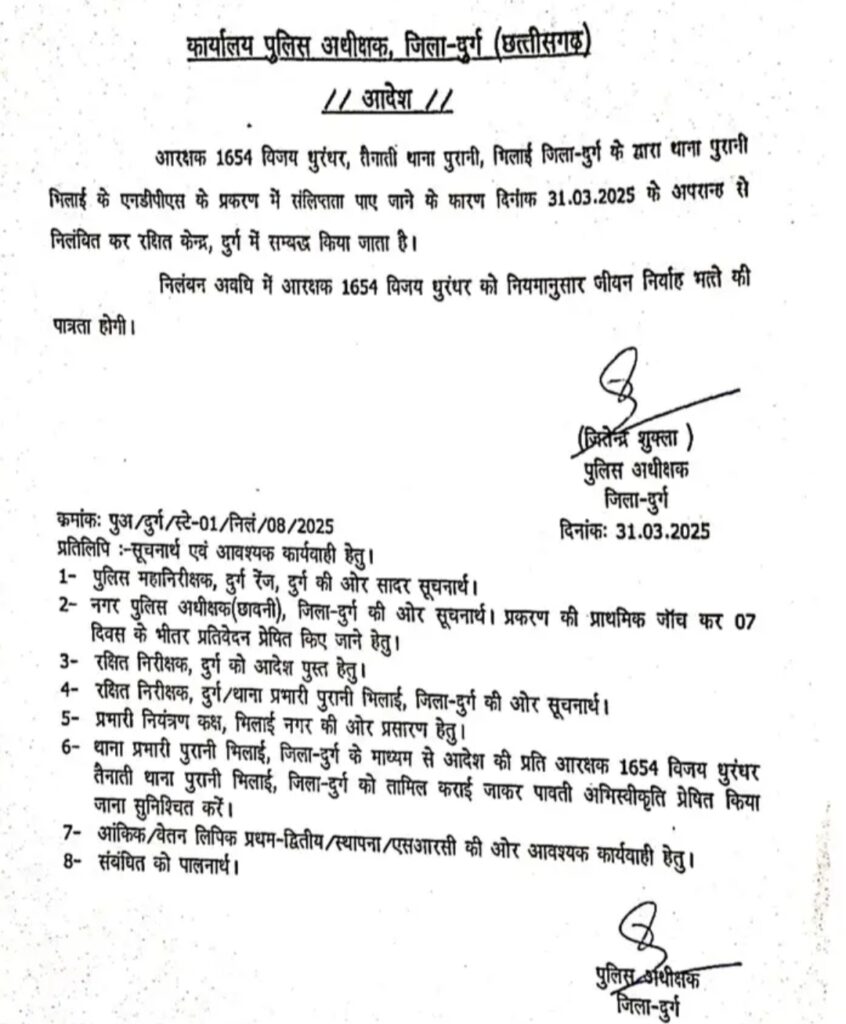 कार्यालय पुलिस अधीक्षक, जिला-दुर्ग (छत्तीसगढ़)
// आदेश //
आरक्षक 1654 विजय धुरंधर, तैनाती थाना पुरानी, भिलाई जिला-दुर्ग के द्वारा थाना पुरानी
भिलाई के एनडीपीएस के प्रकरण में संलिप्तता पाए जाने के कारण दिनांक 31.03.2025 के अपरान्ह से
निलंबित कर रक्षित केन्द्र, दुर्ग में सम्बद्ध किया जाता है।
निलंबन अवधि में आरक्षक 1654 विजय धुरंधर को नियमानुसार जीवन निर्वाह भत्ते की
पात्रता होगी।
(जितेन्द्र शुक्ला )
पुलिस अधीक्षक
जिला-दुर्ग
दिनांकः 31.03.2025
क्रमांकः पुअ/दुर्ग/स्टे-01/निलं/08/2025
प्रतिलिपि :-सूचनार्थ एवं आवश्यक कार्यवाही हेतु।
1- पुलिस महानिरीक्षक, दुर्ग रेंज, दुर्ग की ओर सादर सूचनार्थ।
2- नगर पुलिस अधीक्षक(छावनी), जिला-दुर्ग की ओर सूचनार्थ। प्रकरण की प्राथमिक जॉच कर 07
दिवस के भीतर प्रतिवेदन प्रेषित किए जाने हेतु।
3- रक्षित निरीक्षक, दुर्ग को आदेश पुस्त हेतु।
4- रक्षित निरीक्षक, दुर्ग/थाना प्रभारी पुरानी भिलाई, जिला-दुर्ग की ओर सूचनार्थ।
5- प्रभारी नियंत्रण कक्ष, भिलाई नगर की ओर प्रसारण हेतु।
6- थाना प्रभारी पुरानी भिलाई, जिला-दुर्ग के माध्यम से आदेश की प्रति आरक्षक 1654 विजय धुरंधर
तैनाती थाना पुरानी भिलाई, जिला-दुर्ग को तामिल कराई जाकर पावती अभिस्वीकृति प्रेषित किया
जाना सुनिश्चित करें।
7- आंकिक/वेतन लिपिक प्रथम-द्वितीय/स्थापना/एसआरसी की ओर आवश्यक कार्यवाही हेतु।
8- संबंधित को पालनार्थ।
पुलिस अधीक्षक
जिला-दुर्ग